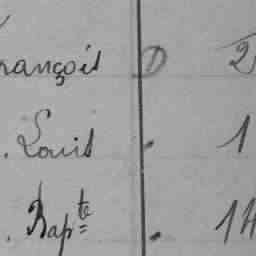 François D 2
. Louis . 1
. Bapte . 14